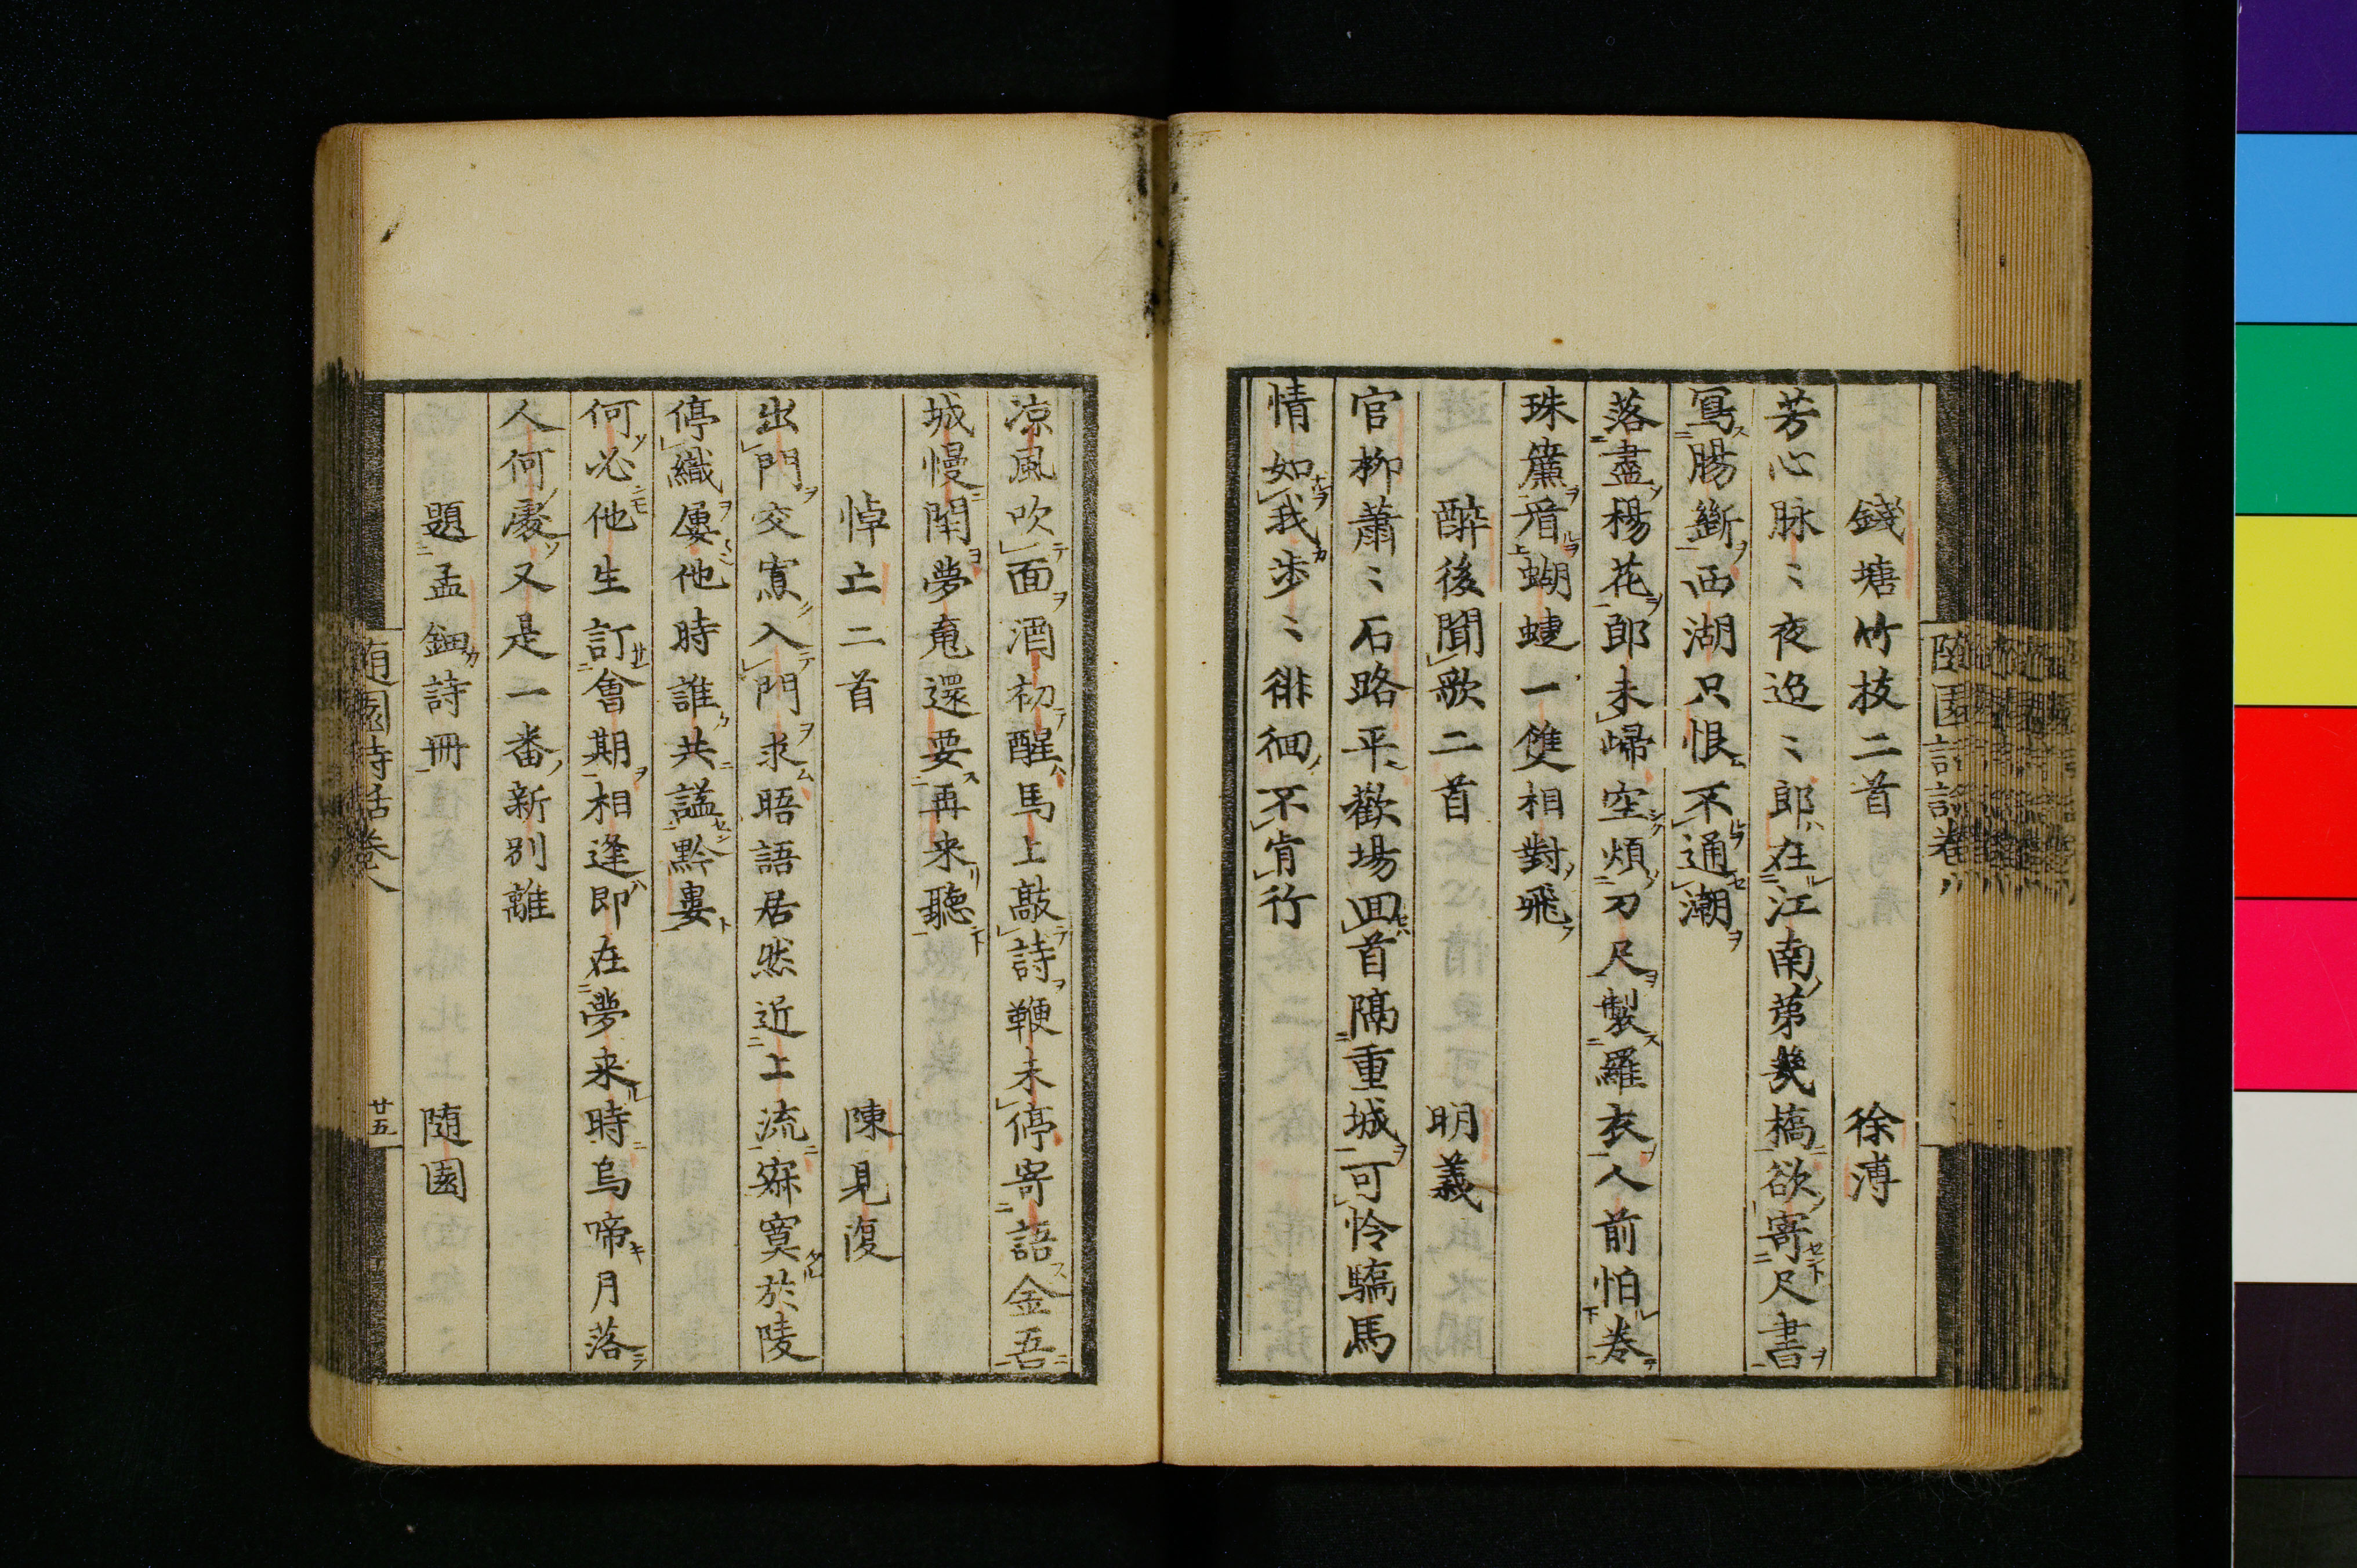 錢塘竹枝二首　徐溥
芳心脉〻夜迢〻郎在江南第幾橋欲寄尺書
寫腸斷西湖只恨不通潮
落盡楊花郎未歸空煩刀尺製羅衣人前怕卷
珠簾看上蝴蝶一雙相對飛
醉後聞歌二首　明義
官柳蕭〻石路平歡場回首隔重城可怜驕馬
情如我步〻徘徊不肯行
凉風吹面酒初醒馬上敲詩鞭未停寄語金吾
城慢閉夢魂還要再来聽
悼亡二首　陳見復
出門交寡入門求晤語居然近上流寂寞於陵
停織屨他時誰共謚黔婁
何必他生訂會期相逢即在夢来時烏啼月落
人何處又是一番新別離
題孟鈿詩冊　随園
随園詩話卷八
廿五